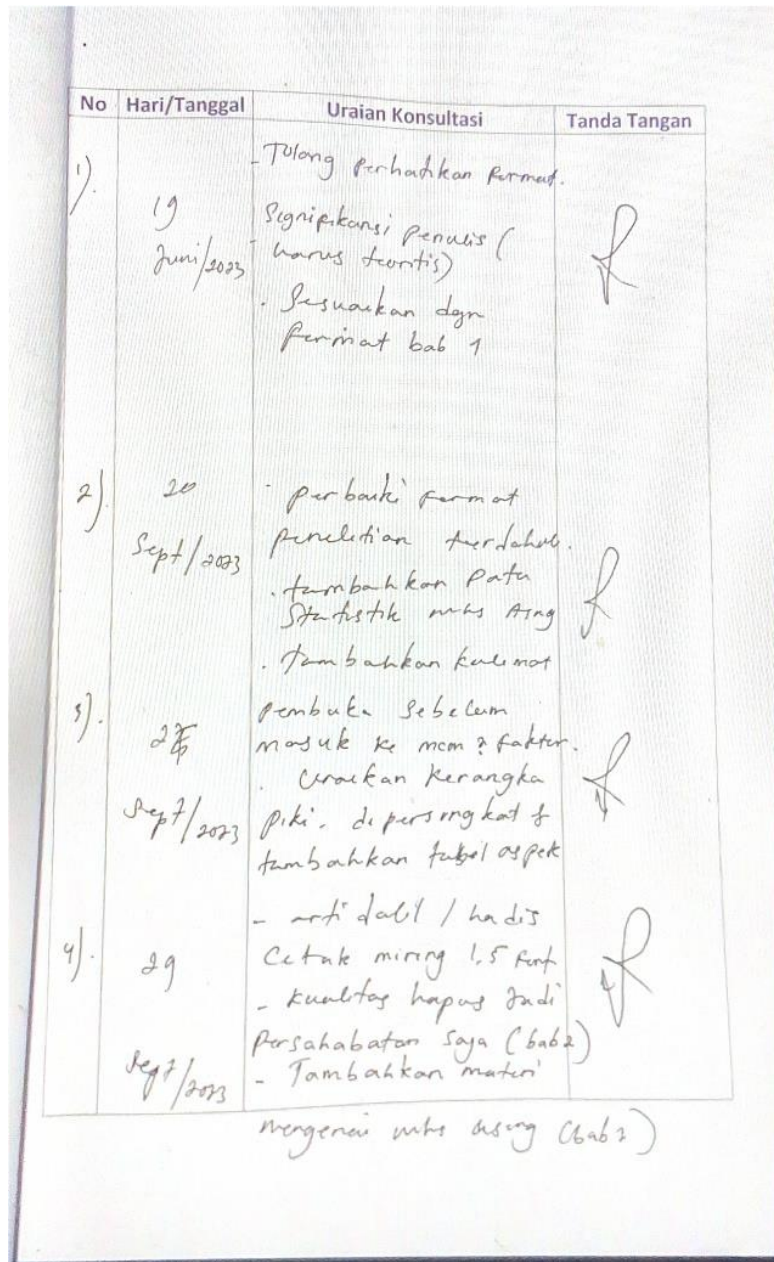 No Hari/Tanggal Uraian Konsultasi Tanda Tangan
1).
- Tolong Perhatikan Format.
19
Juni/2023
- Signifikansi penulis (
harus teoritis)
. Sesuaikan dgn
format bab 1
2).
20
Sept/2023
- perbaiki format
penelitian terdahulu.
. tambahkan Data
Statistik mhs Asing
. tambahkan kalimat
3).
Sept/2023
pembuka sebelum
masuk ke faktor.
. uraikan Kerangka
piki. dipersingkat &
tambahkan tabel aspek
4).
29
Sept/2023
- arti dalil / hadis
Cetak miring 1,5 font
- kualitas hapus Jadi
Persahabatan saja (bab 2)
- Tambahkan materi
mengenai mhs asing (bab 2)